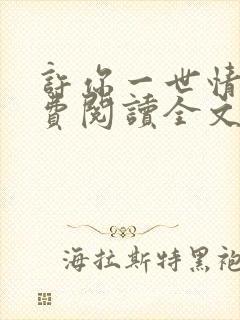 許你一世情
費閱讀全文
海拉斯特黑袍